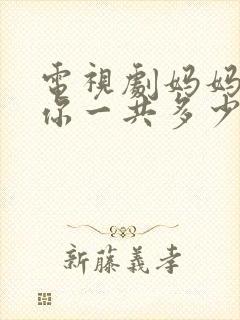 電視劇妈妈
你一共多少
新藤義孝